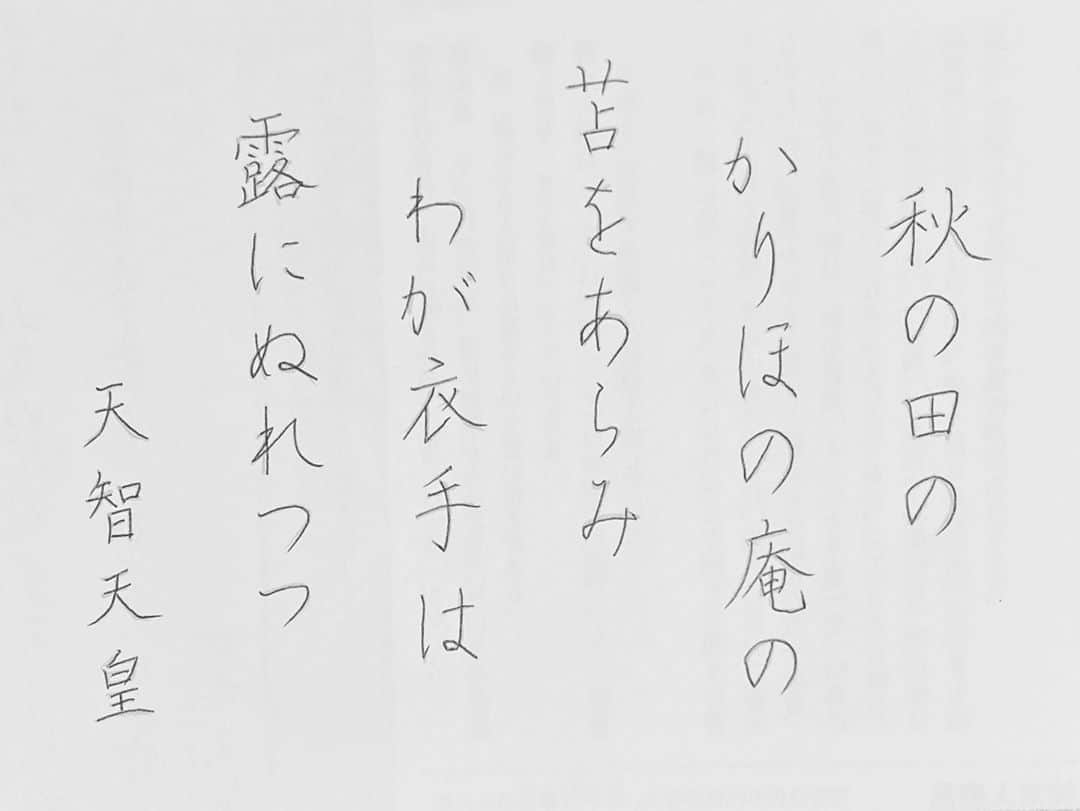 秋の田の
かりほの庵の
苫をあらみ
わが衣手は
露にぬれつつ
天智天皇